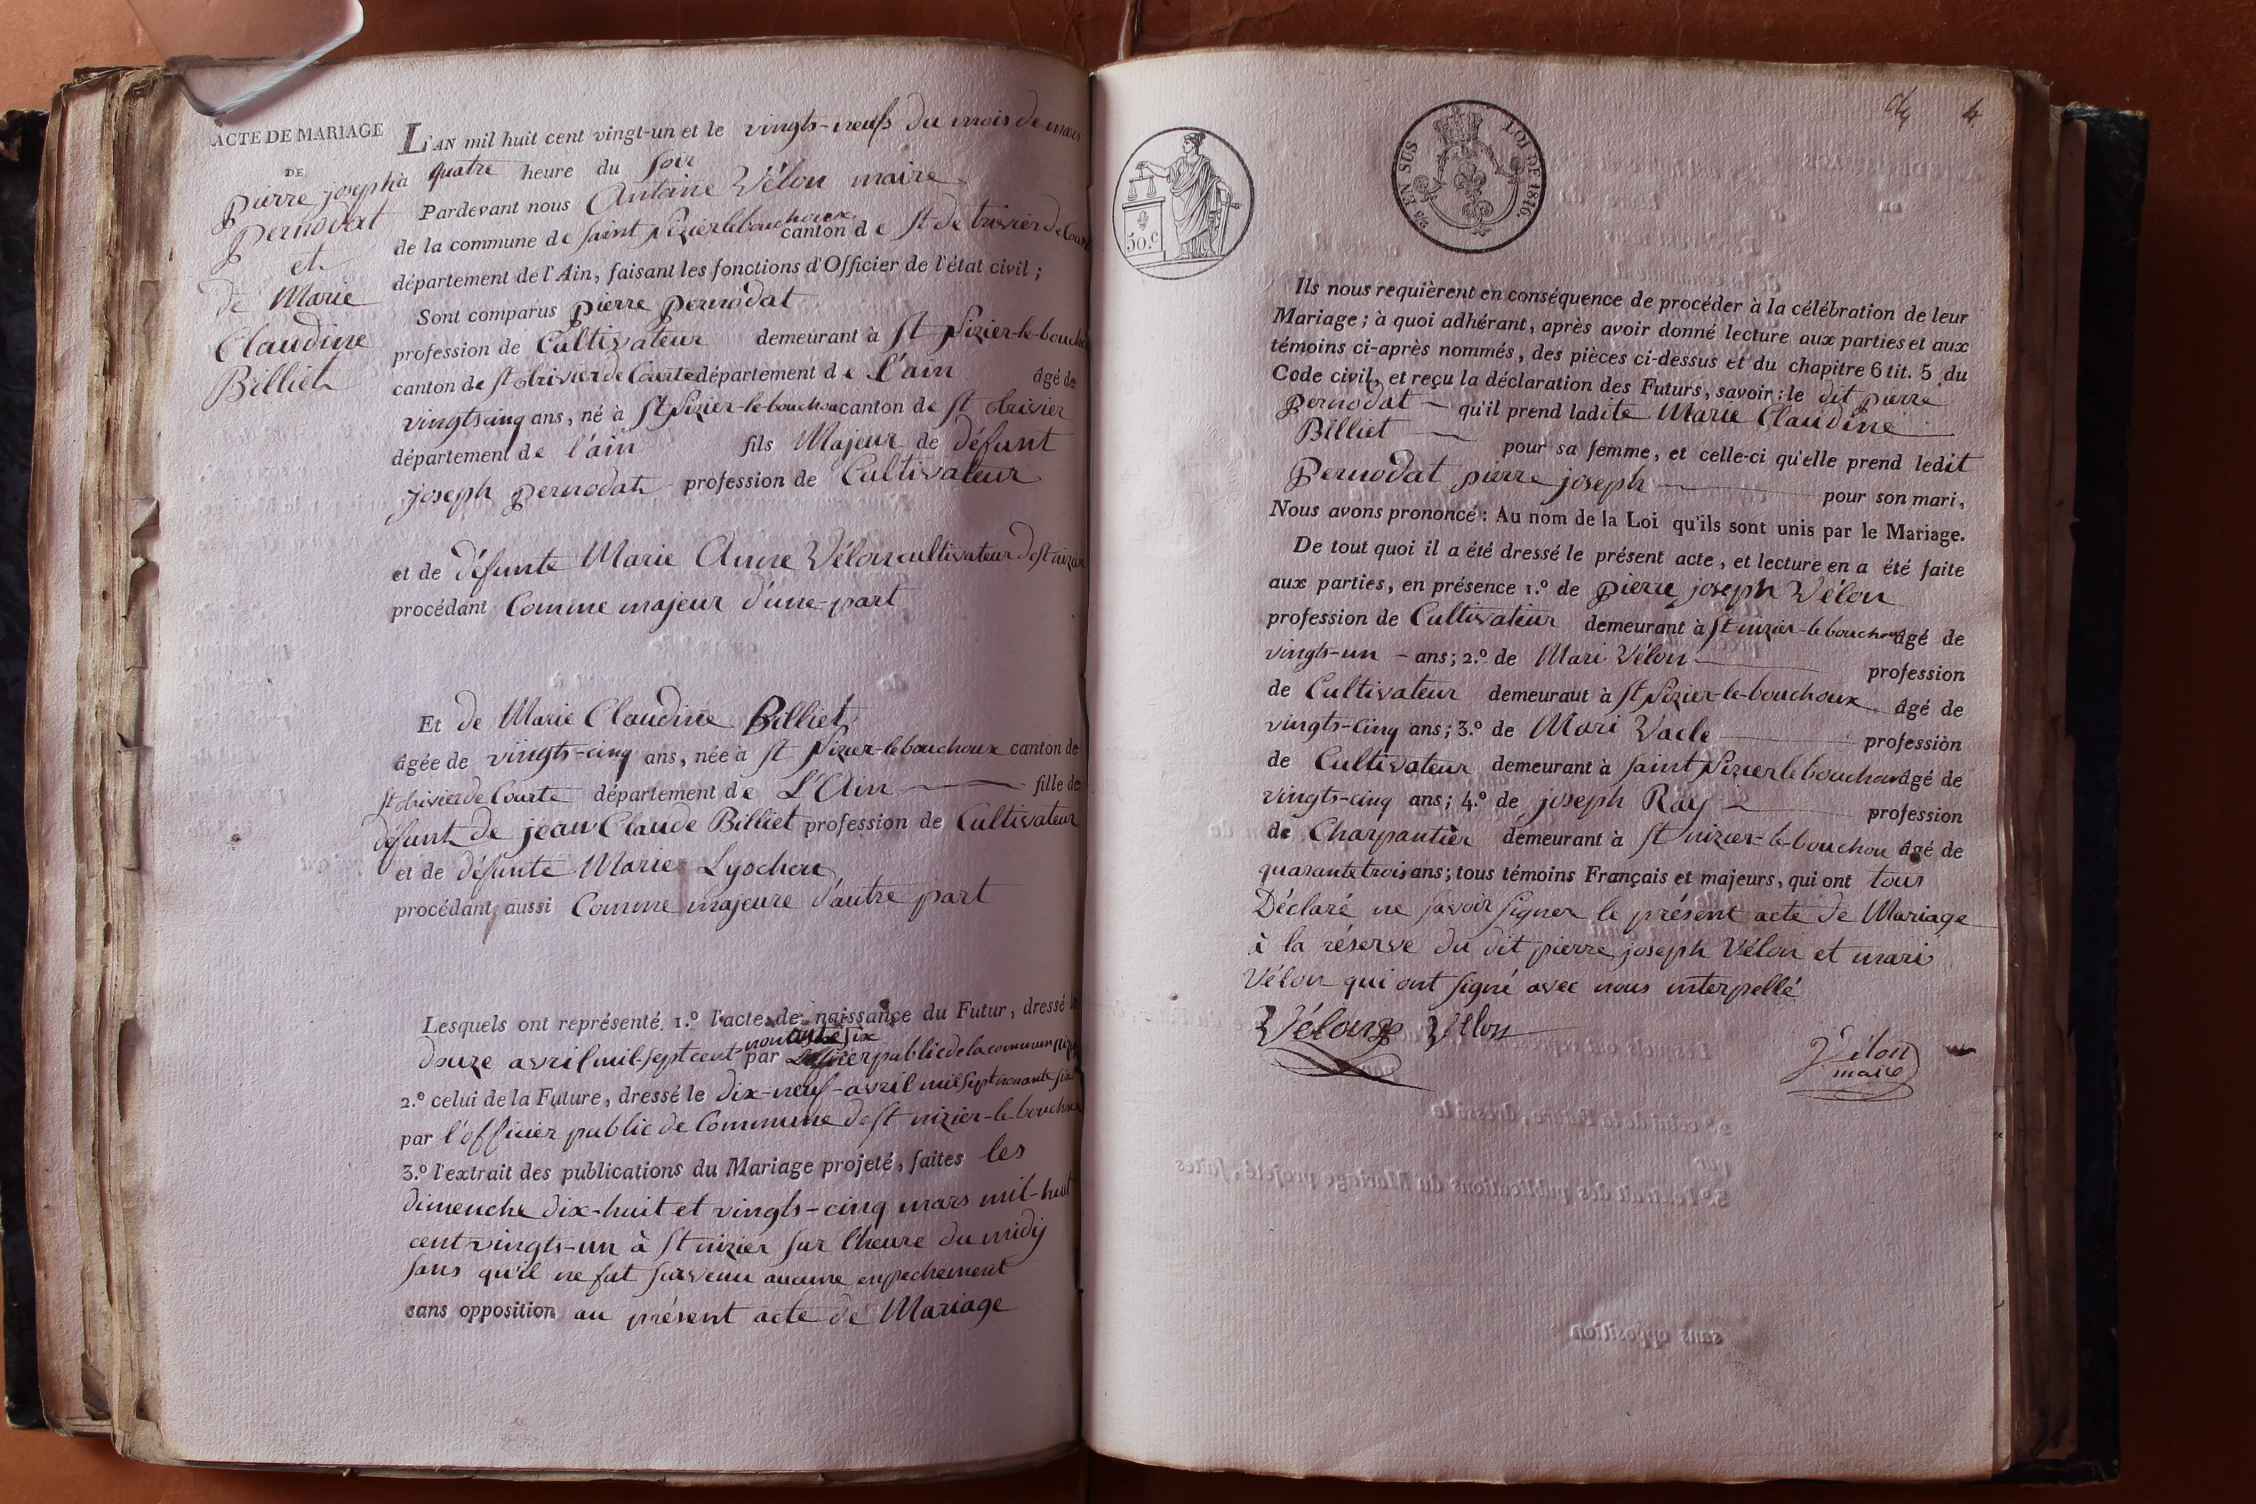 ACTE DE MARIAGE
DE
pierre joseph
pernodat
et
de Marie
Claudine
Billiet
L'AN mil huit cent vingt-un et le vingts-neufs du mois de mars
à quatre heure du soir
Pardevant nous Antoine Vélon maire
de la commune de saint Nizier le bouchoux canton de St de trivier de Courte
département de l'Ain, faisant les fonctions d'Officier de l'état civil;
Sont comparus pierre pernodat
profession de Cultivateur demeurant à St Nizier-le-boucho
canton de St trivier de Courte département de L'ain âgé de
vingtscinq ans, né à St Nizier-le-bouchou canton de St trivier
département de l'ain fils Majeur de défunt
joseph pernodat profession de Cultivateur
et de défunte Marie Anne Vélon cultivateur de St nizier
procédant Comme majeur d'une part
Et de Marie Claudine Billiet
âgée de vingts-cinq ans, née à St Nizier-le bouchoux canton de
St trivier de Courte département de L'Ain fille de
défunt de jean Claude Billiet profession de Cultivateur
et de défunte Marie
procédant aussi Comme majeure d'autre part
Lesquels ont représenté 1.º l'acte de naissance du Futur, dressé le
douze avril mil-sept cent nonante six par L'officier public de la commune
2.º celui de la Future, dressé le dix-neuf-avril mil sept nonante six
par l'officier public de Commune de St nizier-le bouchoux
3.º l'extrait des publications du Mariage projeté, faites les
dimenche dix-huit et vingts-cinq mars mil-huit
cent vingts-un à St nizier sur l'heure du midy
sans qu'il ne fut survenu aucune enpechement
sans opposition au présent acte de Mariage
4
50.c
25 EN SUS
LOI DE 1816.
Ils nous requièrent en conséquence de procéder à la célébration de leur
Mariage; à quoi adhérant, après avoir donné lecture aux parties et aux
témoins ci-après nommés, des pièces ci-dessus et du chapitre 6 tit. 5 du
Code civil, et reçu la déclaration des Futurs, savoir: le dit pierre
pernodat qu'il prend ladite Marie Claudine
Billiet pour sa femme, et celle-ci qu'elle prend ledit
Pernodat pierre joseph pour son mari,
Nous avons prononcé: Au nom de la Loi qu'ils sont unis par le Mariage.
De tout quoi il a été dressé le présent acte, et lecture en a été faite
aux parties, en présence 1.º de pierre joseph Vélon
profession de Cultivateur demeurant à St nizier-le bouchoux âgé de
vingts-un - ans; 2.º de Mari Vélon profession
de Cultivateur demeurant à St Nizier-le-bouchoux âgé de
vingts-cinq ans; 3.º de Mari Vacle profession
de Cultivateur demeurant à saint Nizier le bouchoux âgé de
vingts-cinq ans; 4.º de joseph Ray profession
de Charpantier demeurant à St nizier-le-bouchou âgé de
quarante trois ans; tous témoins Français et majeurs, qui ont tous
Déclaré ne savoir signer le présent acte de Mariage
à la réserve du dit pierre joseph Vélon et mari
Vélon qui ont signé avec nous interpellé
Vélon Vélon
Vélon
maire